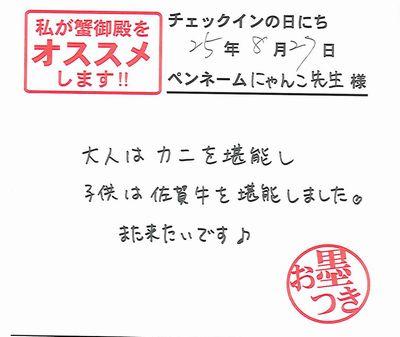 私が蟹御殿を
オススメ
します!!
チェックインの日にち
25年8月27日
ペンネームにゃんこ先生様
大人はカニを堪能し
子供は佐賀牛を堪能しました。
また来たいです♪
お墨つき